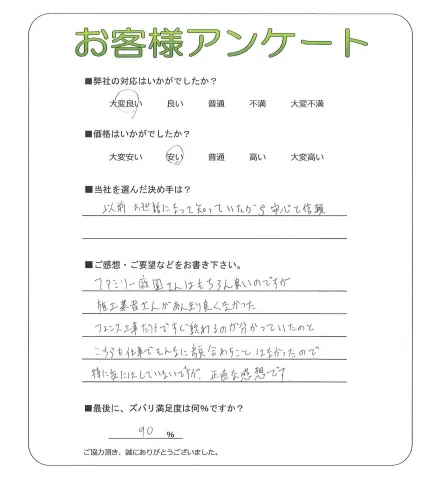 お客様アンケート
■弊社の対応はいかがでしたか？
大変良い 良い 普通 不満 大変不満
■価格はいかがでしたか？
大変安い 安い 普通 高い 大変高い
■当社を選んだ決め手は？
以前お世話になって知っていたから 安心と信頼
■ご感想・ご要望などをお書き下さい。
ファミリー庭園さんはもちろん良いのですが
施工業者さんがあんまり良くなかった
フェンス工事だけですぐ終わるのが分かっていたのと
こちらも仕事でそんなに顔合わすことはなかったので
特に気にはしていないですが、正直な感想です。
■最後に、ズバリ満足度は何%ですか？
90 %
ご協力頂き、誠にありがとうございました。